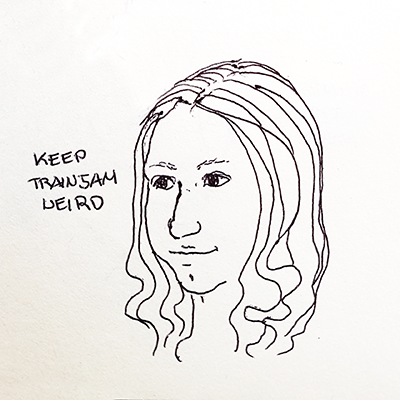 KEEP
TRAINJAM
WEIRD